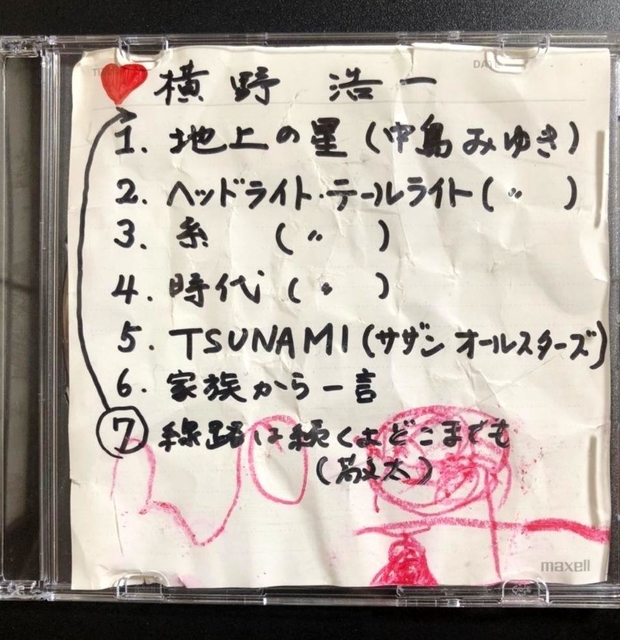 TITLE
DATE
横野 浩一
1. 地上の星(中島みゆき)
2. ヘッドライト・テールライト(〃)
3. 糸 (〃)
4. 時代(〃)
5. TSUNAMI(サザンオールスターズ)
6. 家族から一言
⑦ 線路は続くよどこまでも
maxell